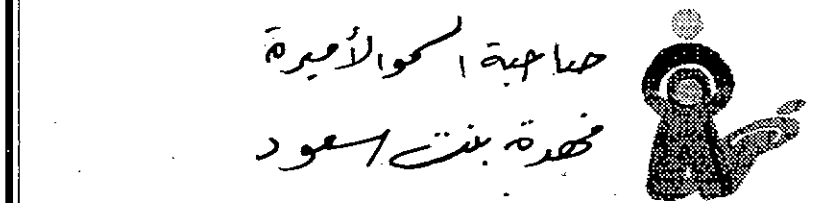 صاحبة السمو الأميرة
فهدة بنت سعود